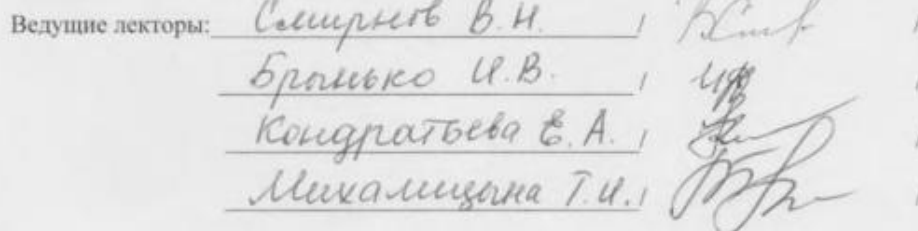 Ведущие лекторы: Смирнов В.Н. /
Брынько И.В. /
Кондратьева Е.А. /
Михалицына Т.И. /